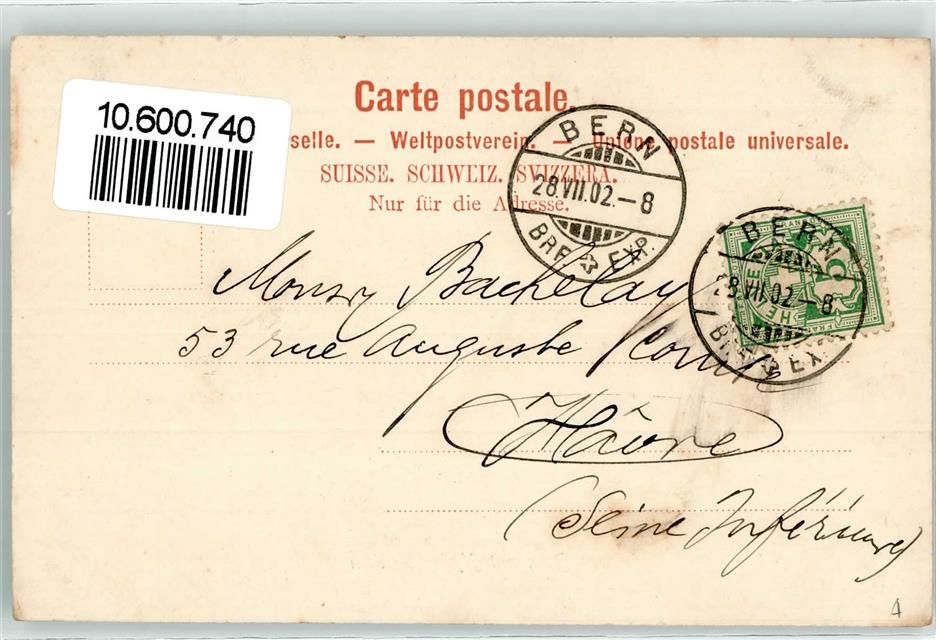 10.600.740
Carte postale.
selle. — Weltpostverein. — Unione postale universale.
SUISSE. SCHWEIZ. SVIZZERA.
Nur für die Adresse.
BERN
28.VII.02.–8
BRF. EXP.
BERN
28.VII.02.–8
BRF. EXP.
5
Monsr Bachelay
53 rue Auguste Comte
Hâvre
(Seine Inférieure)